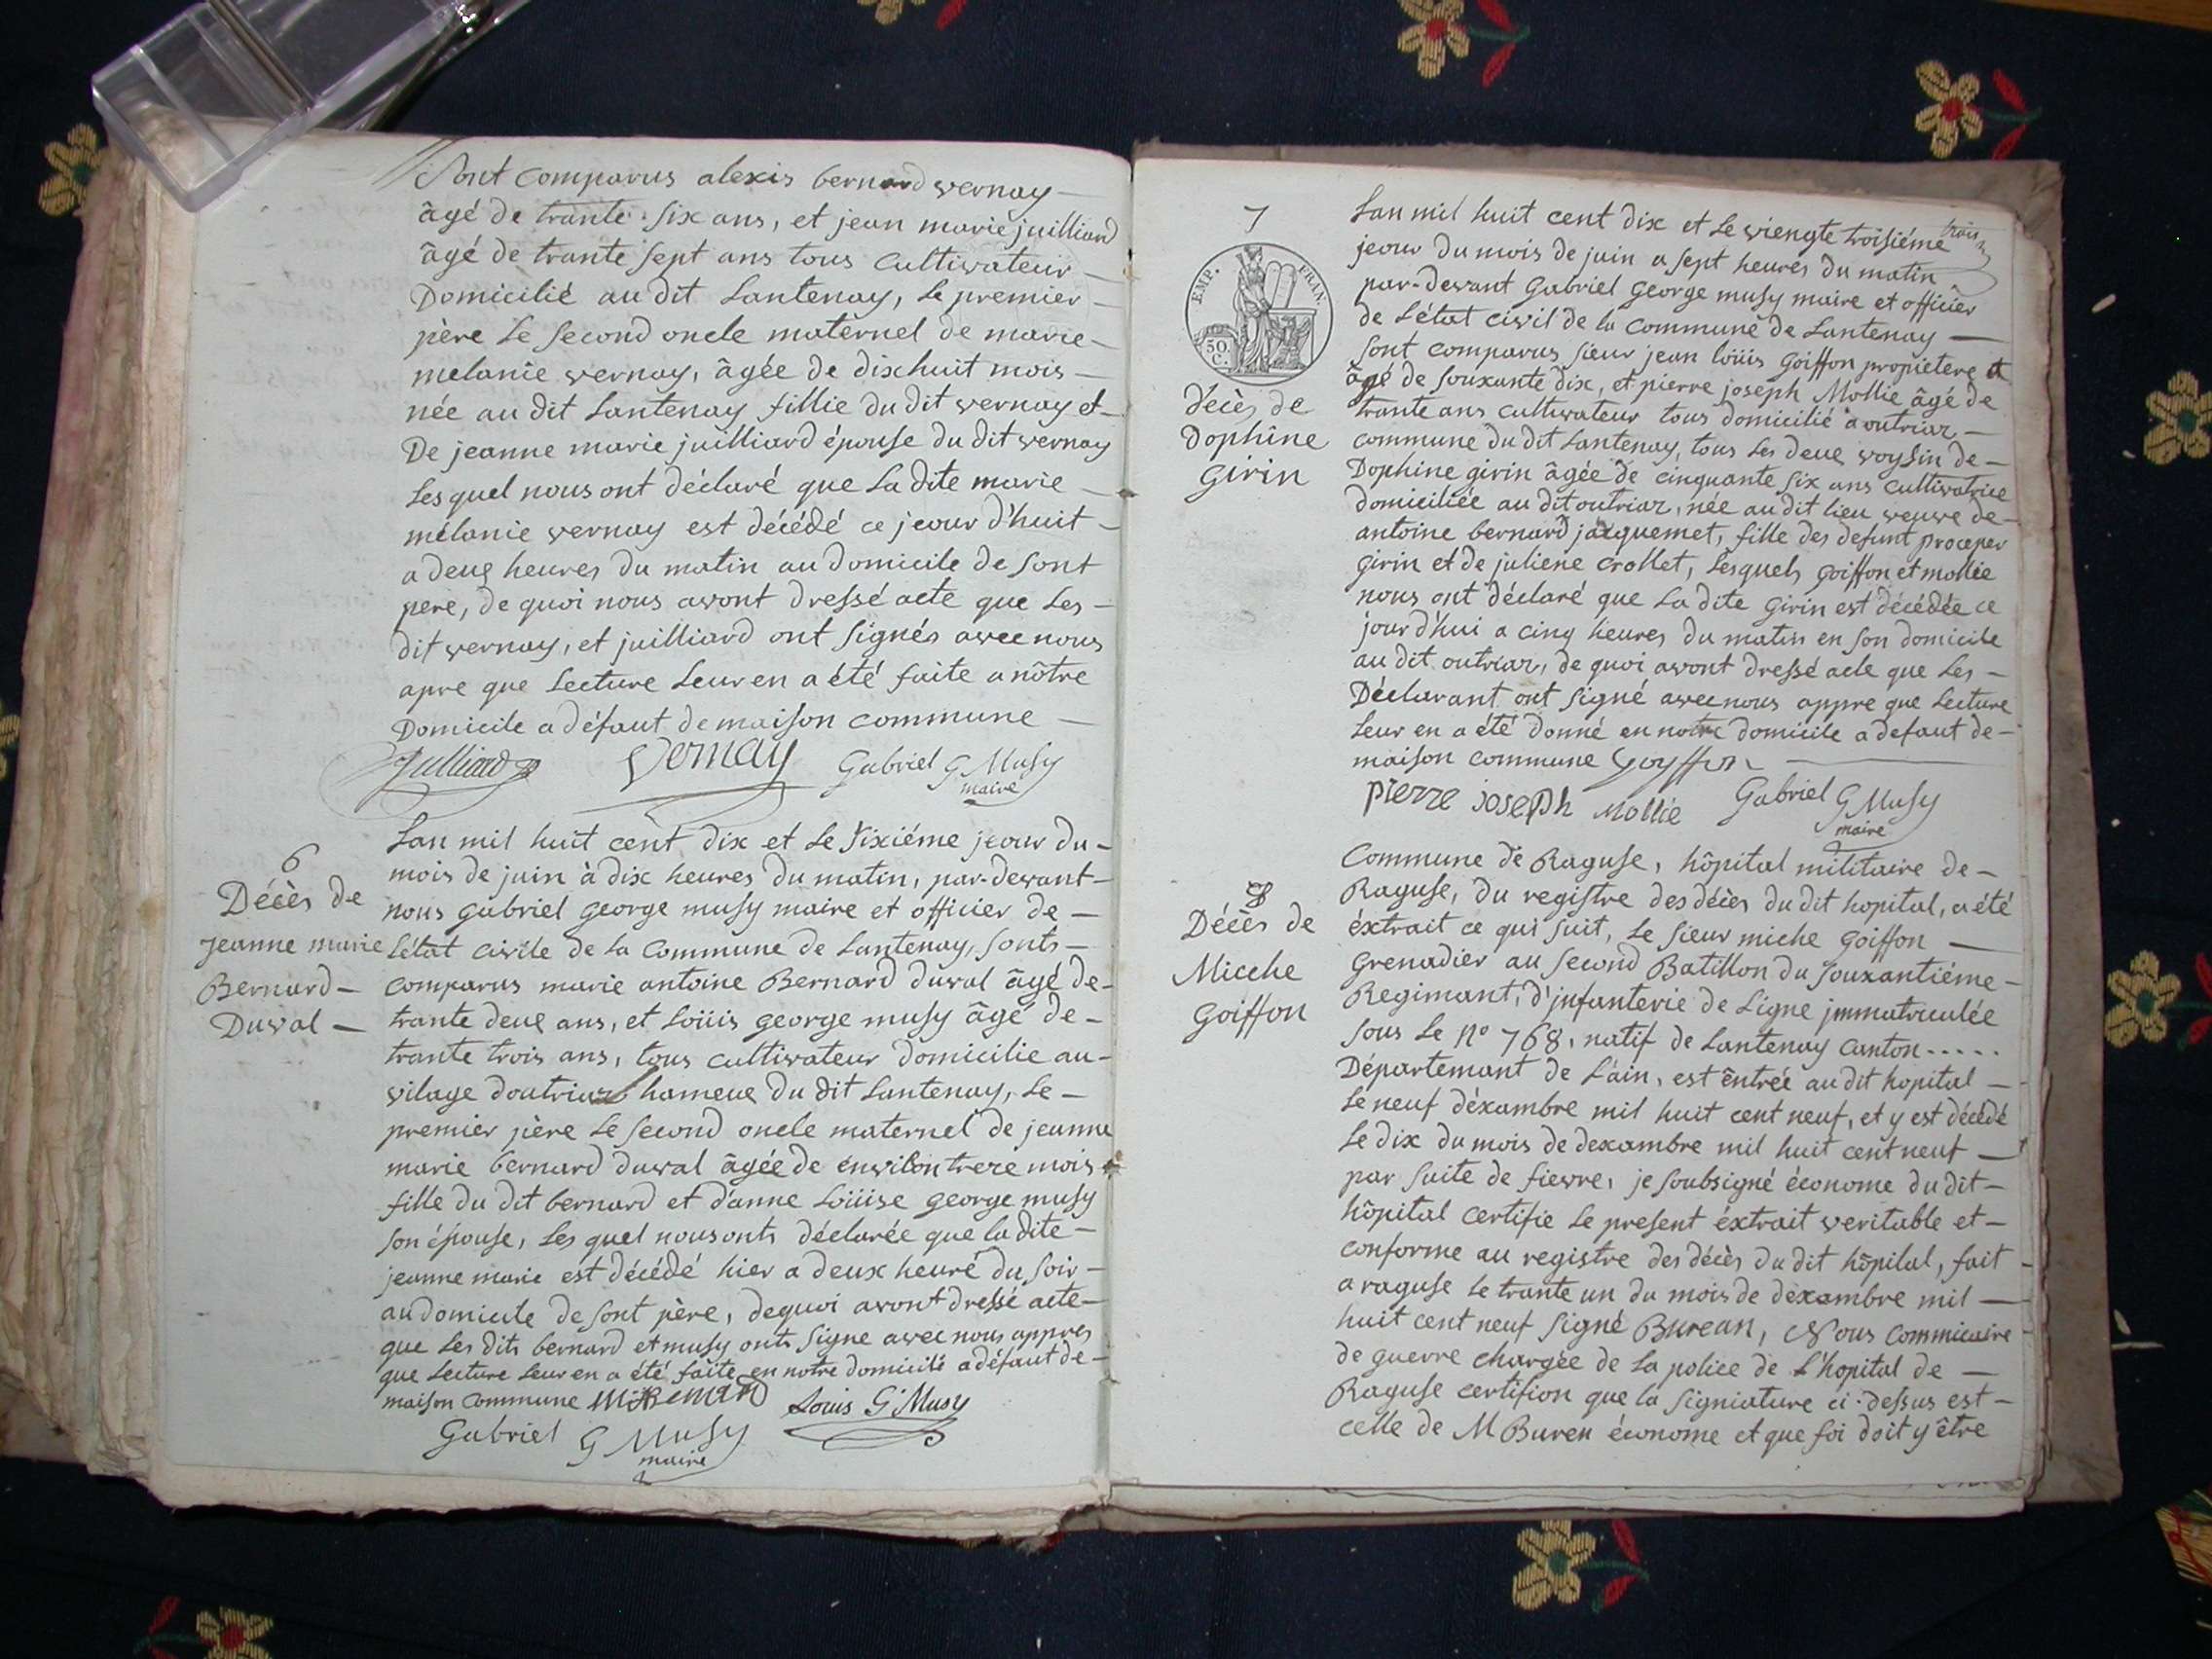 Sont comparus alexis bernard vernay
âgé de trante six ans, et jean marie juilliard
âgé de trante sept ans tous cultivateur
Domicilié au dit Lantenay, le premier
père le second oncle maternel de marie
melanie vernay, âgée de dixhuit mois
née au dit Lantenay fillie du dit vernay et
De jeanne marie juilliard épouse du dit vernay
Lesquel nous ont déclaré que la dite marie
mélanie vernay est décédé ce jeour d'huit
a deux heures du matin au domicile de sont
pere, de quoi nous avont dressé acte que les
dit vernay, et juilliard ont signés avec nous
apre que lecture leur en a été faite a nôtre
Domicile a défaut de maison commune
Julliard Vernay Gabriel G Musy
maire
6
Décès de
jeanne marie
Bernard
Duval
Lan mil huit cent dix et le sixiéme jeour du
mois de juin à dix heures du matin, par-devant
nous gabriel george musy maire et officier de
L'état civile de la commune de Lantenay, sonts
comparus marie antoine Bernard duval âgé de
trante deux ans, et Loüis george musy âgé de
trante trois ans, tous cultivateur domicilie au
vilage doutriaz hameux du dit Lantenay, le
premier père le second oncle maternel de jeanne
marie bernard duval âgée de environ treze mois
fille du dit bernard et d'anne Loüise george musy
son épouse, les quel nous onts déclarée que la dite
jeanne marie est décédé hier a deux heure du soir
au domicile de sont père, de quoi avont dressé acte
que les dits bernard et musy onts signe avec nous appres
que lecture leur en a été faite en notre domicile a défaut de
maison commune Louis G Musy
Gabriel G Musy
maire
trois
7
EMP. FRAN.
50 C.
décès de
Dophine
Girin
Lan mil huit cent dix et le viengte troisiéme
jeour du mois de juin a sept heures du matin
par-devant Gabriel George musy maire et officier
de L'état civil de la commune de Lantenay
sont comparus sieur jean loüis Goiffon propietere
âgé de souxante dix, et pierre joseph Mollie âgé de
trante ans cultivateur tous domicilié a outriaz
commune du dit Lantenay, tous les deux voysin de
Dophine girin âgée de cinquante six ans cultivatrice
domiciliée au dit outriaz, née au dit lieu veuve de
antoine bernard jacquemet, fille des defunt procper
girin et de juliene crollet, Lesquels goiffon et mollie
nous ont déclaré que la dite girin est décédée ce
jour d'hui a cinq heures du matin en son domicile
au dit outriaz, de quoi avont dressé acte que les
Déclarant ont signé avec nous appre que lecture
leur en a été donné en notre domicile a defaut de
maison commune Goyffon
pierre joseph Mollie Gabriel G Musy
maire
8
Décès de
Micche
Goiffon
Commune de Raguse, hôpital militaire de
Raguse, du registre des décès du dit hopital, a été
éxtrait ce qui suit, le sieur miche goiffon
Grenadier au second Batillon du souxantiéme
Regimant, d'jnfanterie de Ligne jmmatriculée
sous le N° 768, natif de Lantenay canton.....
Département de L'ain, est êntrée au dit hopital
Le neuf déxambre mil huit cent neuf, et y est décédé
Le dix du mois de dexambre mil huit cent neuf
par suite de fievre, je soubsigné économe du dit
hôpital certifie le present éxtrait veritable et
conforme au registre des décès du dit hôpital, fait
a raguse le trante un du mois de dexambre mil
huit cent neuf signé Burean, Nous commicaire
de guerre chargée de la police de L'hopital de
Raguse certifion que la signiature ci-dessus est
celle de M Buren économe et que foi doit y être